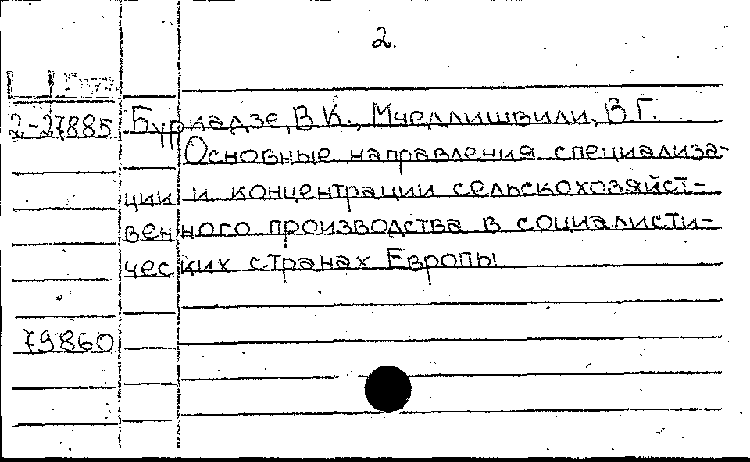 2.
2-27885 Бурладзе, В.К., Мчедлишвили, В.Г.
Основные направления специализа-
ции и концентрации сельскохозяйст-
венного производства в социалисти-
ческих странах Европы
79860